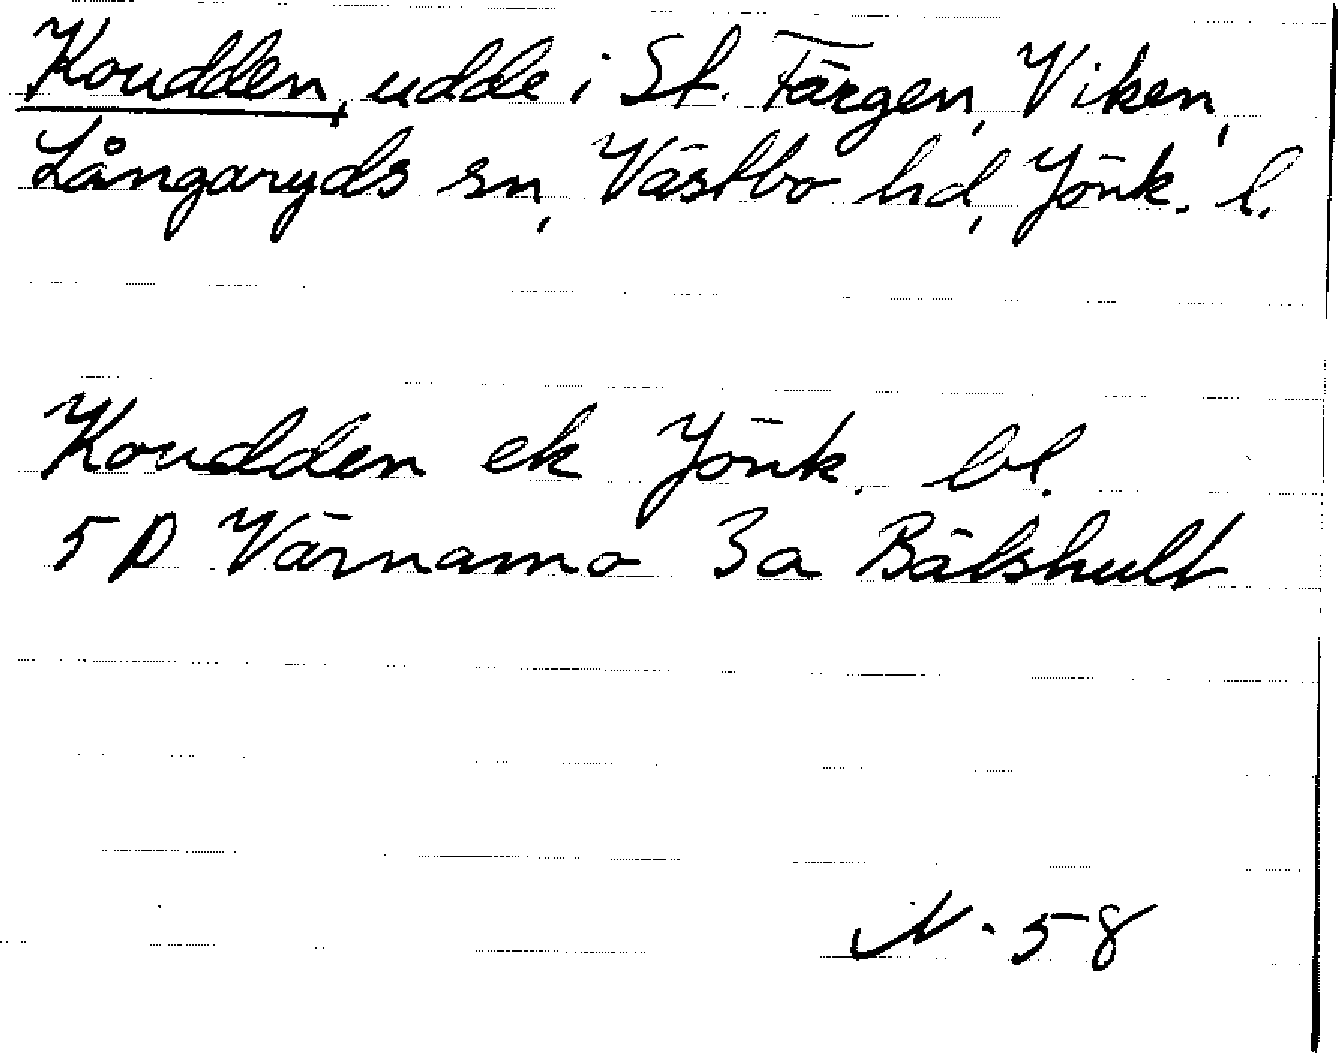 Koudden, udde i St. Färgen, Viken,
Långaryds sn, Västbo hd, Jönk. l.
Koudden ek Jönk. bl.
5 D Värnamo 3a Bälshult
N. 58